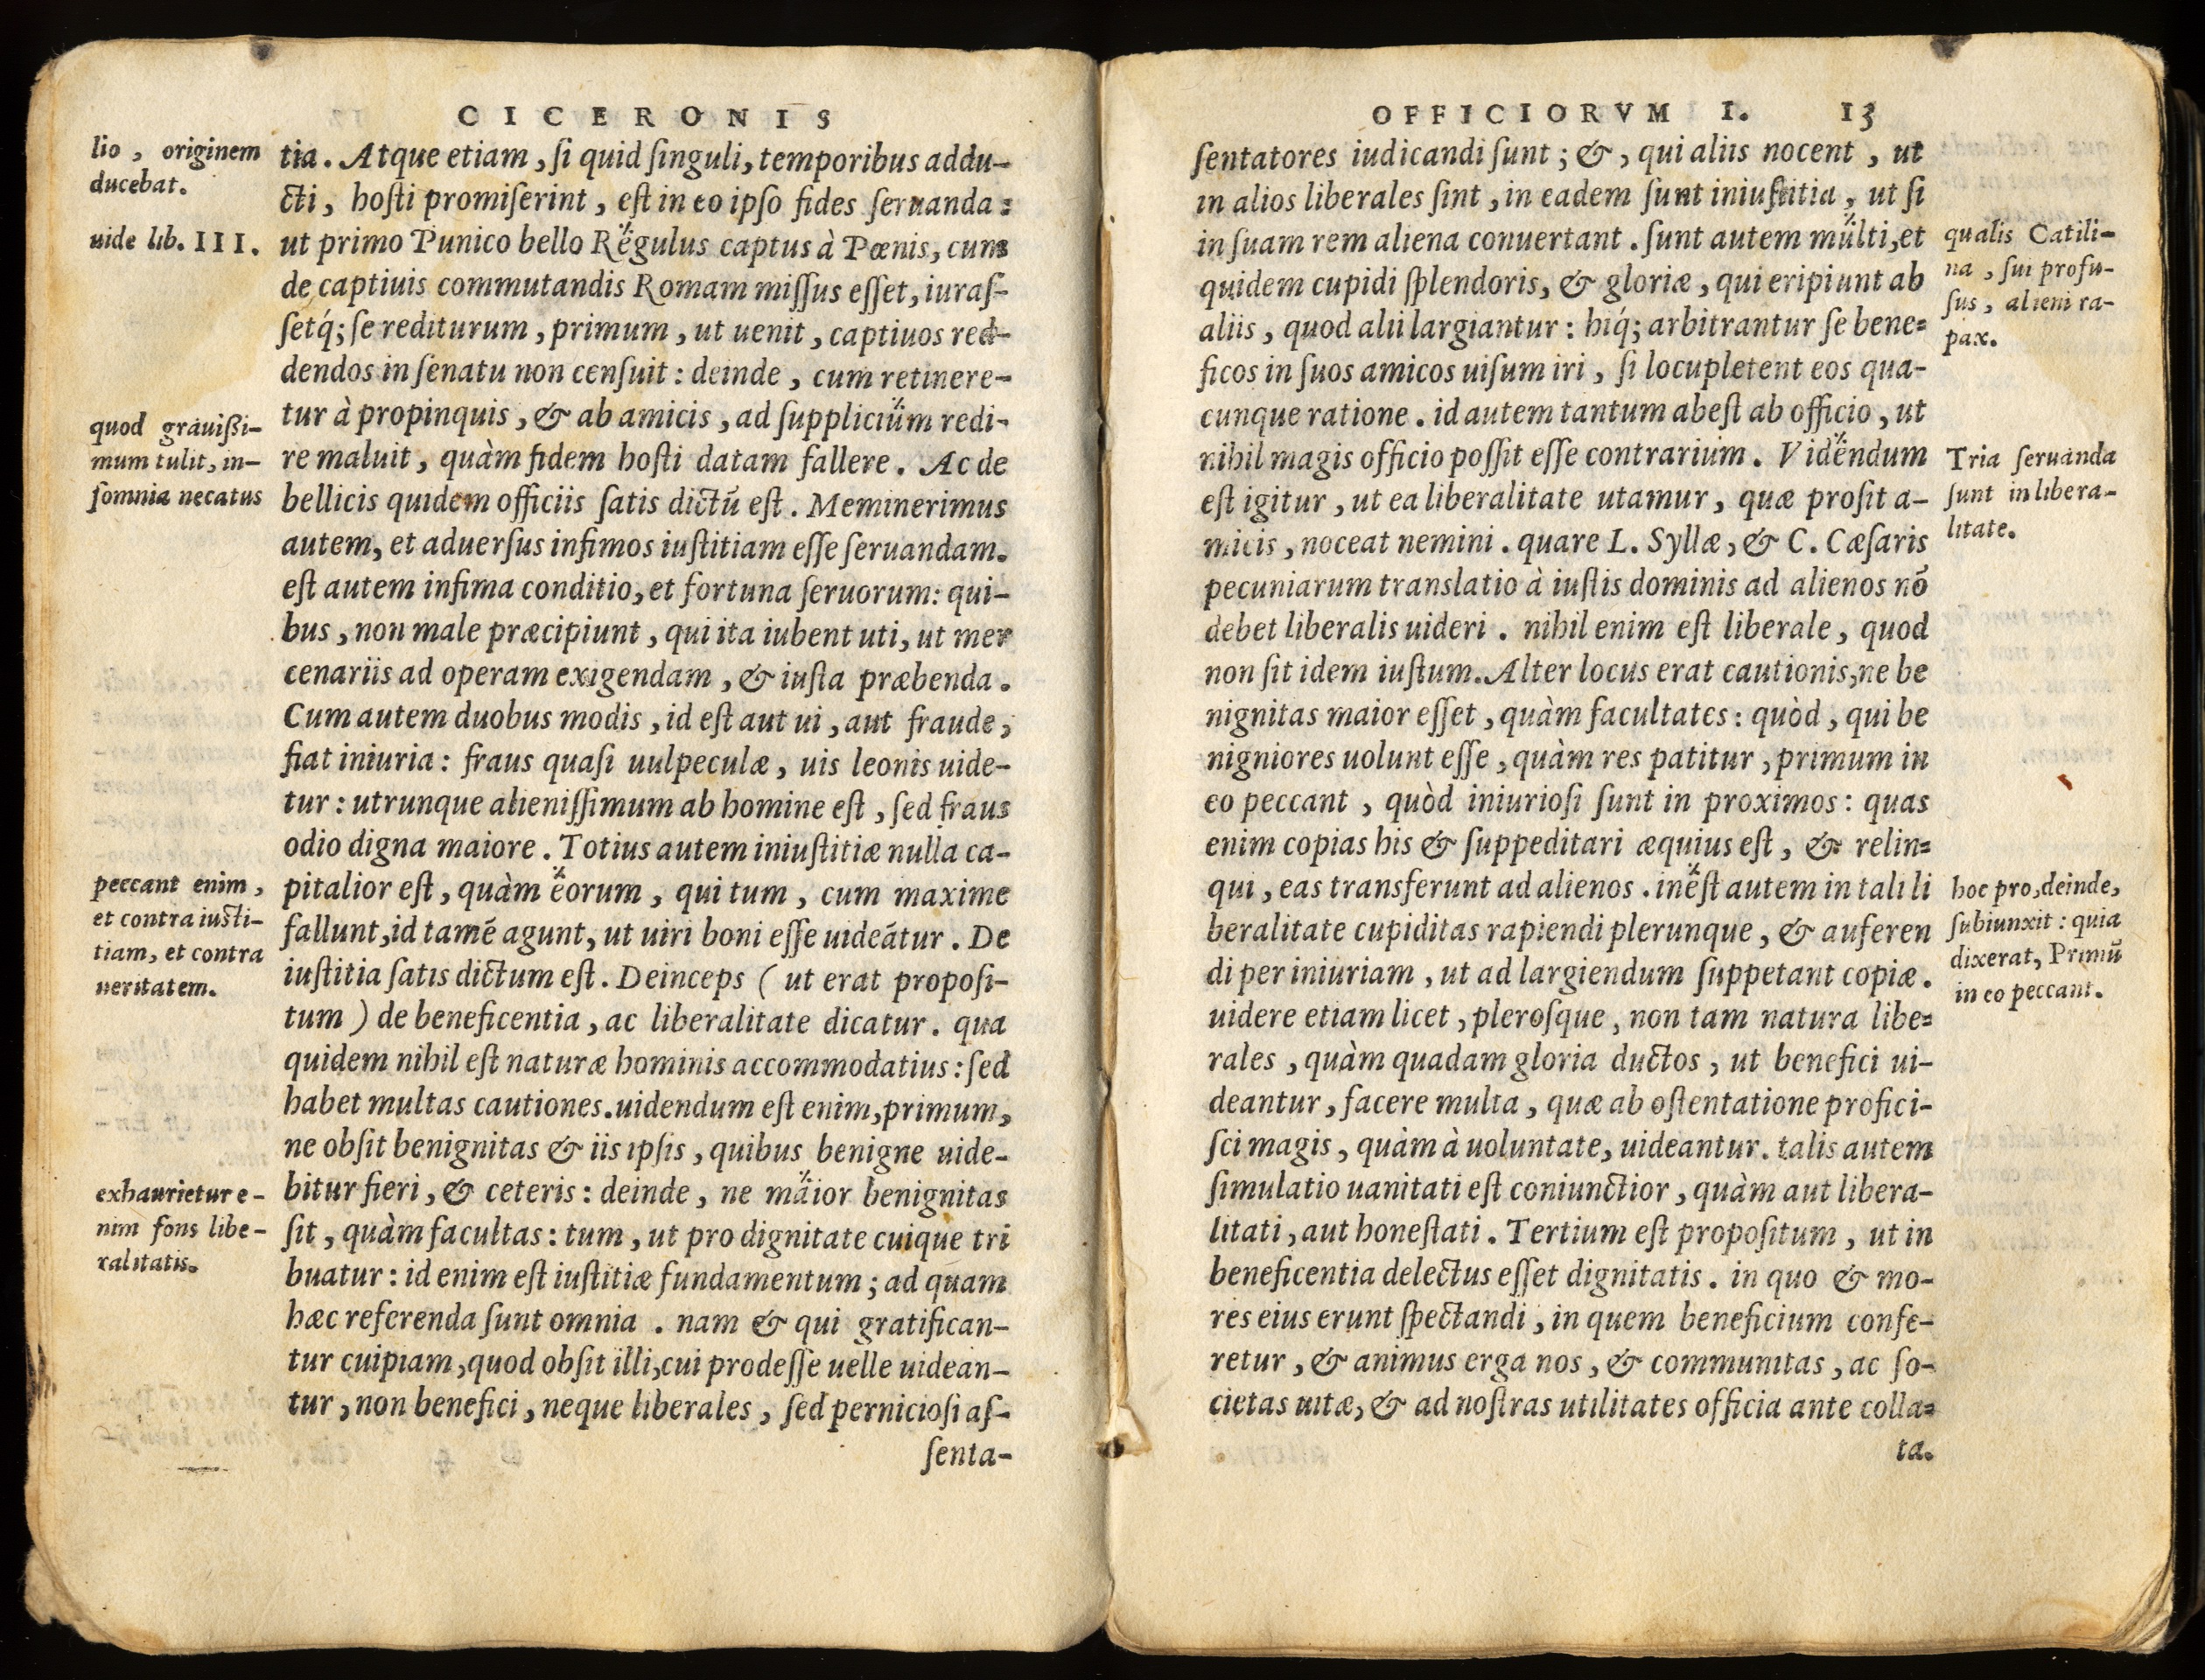 CICERONIS
lio, originem
ducebat.
uide lib. III.
quod grauißi-
mum tulit, in-
somnia necatus
peccant enim,
et contra iusti-
tiam, et contra
ueritatem.
exhaurietur e-
nim fons libe-
ralitatis.
tia. Atque etiam, ſi quid ſinguli, temporibus addu-
cti, hoſti promiſerint, eſt in eo ipſo fides ſeruanda:
ut primo Punico bello Regulus captus à Pœnis, cum
de captiuis commutandis Romam miſſus eſſet, iuraſ-
ſetq́; ſe rediturum, primum, ut uenit, captiuos red-
dendos in ſenatu non cenſuit: deinde, cum retinere-
tur à propinquis, & ab amicis, ad ſupplicium redi-
re maluit, quàm fidem hoſti datam fallere. Ac de
bellicis quidem officiis ſatis dictū eſt. Meminerimus
autem, et aduerſus infimos iuſtitiam eſſe ſeruandam.
eſt autem infima conditio, et fortuna ſeruorum: qui-
bus, non male præcipiunt, qui ita iubent uti, ut mer
cenariis ad operam exigendam, & iuſta præbenda.
Cum autem duobus modis, id eſt aut ui, aut fraude,
fiat iniuria: fraus quaſi uulpeculæ, uis leonis uide-
tur: utrunque alieniſſimum ab homine eſt, ſed fraus
odio digna maiore. Totius autem iniuſtitiæ nulla ca-
pitalior eſt, quàm eorum, qui tum, cum maxime
fallunt, id tamē agunt, ut uiri boni eſſe uideātur. De
iuſtitia ſatis dictum eſt. Deinceps ( ut erat propoſi-
tum ) de beneficentia, ac liberalitate dicatur. qua
quidem nihil eſt naturæ hominis accommodatius: ſed
habet multas cautiones. uidendum eſt enim, primum,
ne obſit benignitas & iis ipſis, quibus benigne uide-
bitur fieri, & ceteris: deinde, ne maior benignitas
ſit, quàm facultas: tum, ut pro dignitate cuique tri
buatur: id enim eſt iuſtitiæ fundamentum; ad quam
hæc referenda ſunt omnia. nam & qui gratifican-
tur cuipiam, quod obſit illi, cui prodeſſe uelle uidean-
tur, non benefici, neque liberales, ſed pernicioſi aſ-
ſenta-
OFFICIORVM I. 13
ſentatores iudicandi ſunt; &, qui aliis nocent, ut
in alios liberales ſint, in eadem ſunt iniuſtitia, ut ſi
in ſuam rem aliena conuertant. ſunt autem multi, et
quidem cupidi ſplendoris, & gloriæ, qui eripiunt ab
aliis, quod alii largiantur: hiq́; arbitrantur ſe bene-
ficos in ſuos amicos uiſum iri, ſi locupletent eos qua-
cunque ratione. id autem tantum abeſt ab officio, ut
nihil magis officio poſſit eſſe contrarium. Videndum
eſt igitur, ut ea liberalitate utamur, quæ proſit a-
micis, noceat nemini. quare L. Syllæ, & C. Cæſaris
pecuniarum translatio à iuſtis dominis ad alienos nō
debet liberalis uideri. nihil enim eſt liberale, quod
non ſit idem iuſtum. Alter locus erat cautionis, ne be
nignitas maior eſſet, quàm facultates: quòd, qui be
nigniores uolunt eſſe, quàm res patitur, primum in
eo peccant, quòd iniurioſi ſunt in proximos: quas
enim copias his & ſuppeditari æquius eſt, & relin-
qui, eas transferunt ad alienos. ineſt autem in tali li
beralitate cupiditas rapiendi plerunque, & auferen
di per iniuriam, ut ad largiendum ſuppetant copiæ.
uidere etiam licet, pleroſque, non tam natura libe-
rales, quàm quadam gloria ductos, ut benefici ui-
deantur, facere multa, quæ ab oſtentatione profici-
ſci magis, quàm à uoluntate, uideantur. talis autem
ſimulatio uanitati eſt coniunctior, quàm aut libera-
litati, aut honeſtati. Tertium eſt propoſitum, ut in
beneficentia delectus eſſet dignitatis. in quo & mo-
res eius erunt ſpectandi, in quem beneficium confe-
retur, & animus erga nos, & communitas, ac ſo-
cietas uitæ, & ad noſtras utilitates officia ante colla-
ta.
qualis Catili-
na, ſui profu-
ſus, alieni ra-
pax.
Tria ſeruanda
ſunt in libera-
litate.
hoc pro, deinde,
ſubiunxit: quia
dixerat, Primū
in eo peccant.